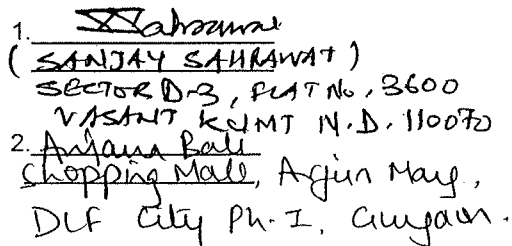 1. Sahrawat
( SANJAY SAHRAWAT )
SECTOR D-3, FLAT No. 3600
VASANT KUNJ N.D. 110070
2. Anjana Bali
Shopping Mall, Arjun Marg,
DLF City Ph. I, Gurgaon.